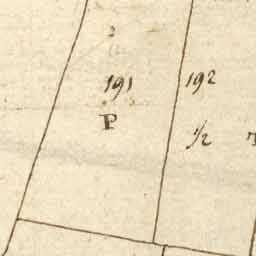 2
191
P
192
1/2